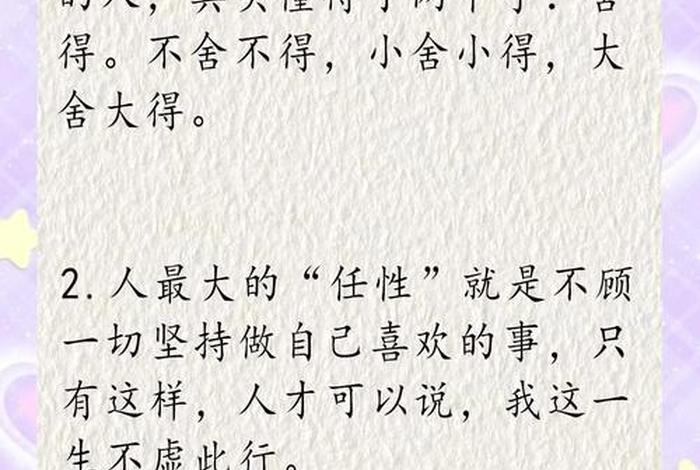 的人，其实懂得了两个字：舍
得。不舍不得，小舍小得，大
舍大得。
2.人最大的“任性”就是不顾
一切坚持做自己喜欢的事，只
有这样，人才可以说，我这一
生不虚此行。